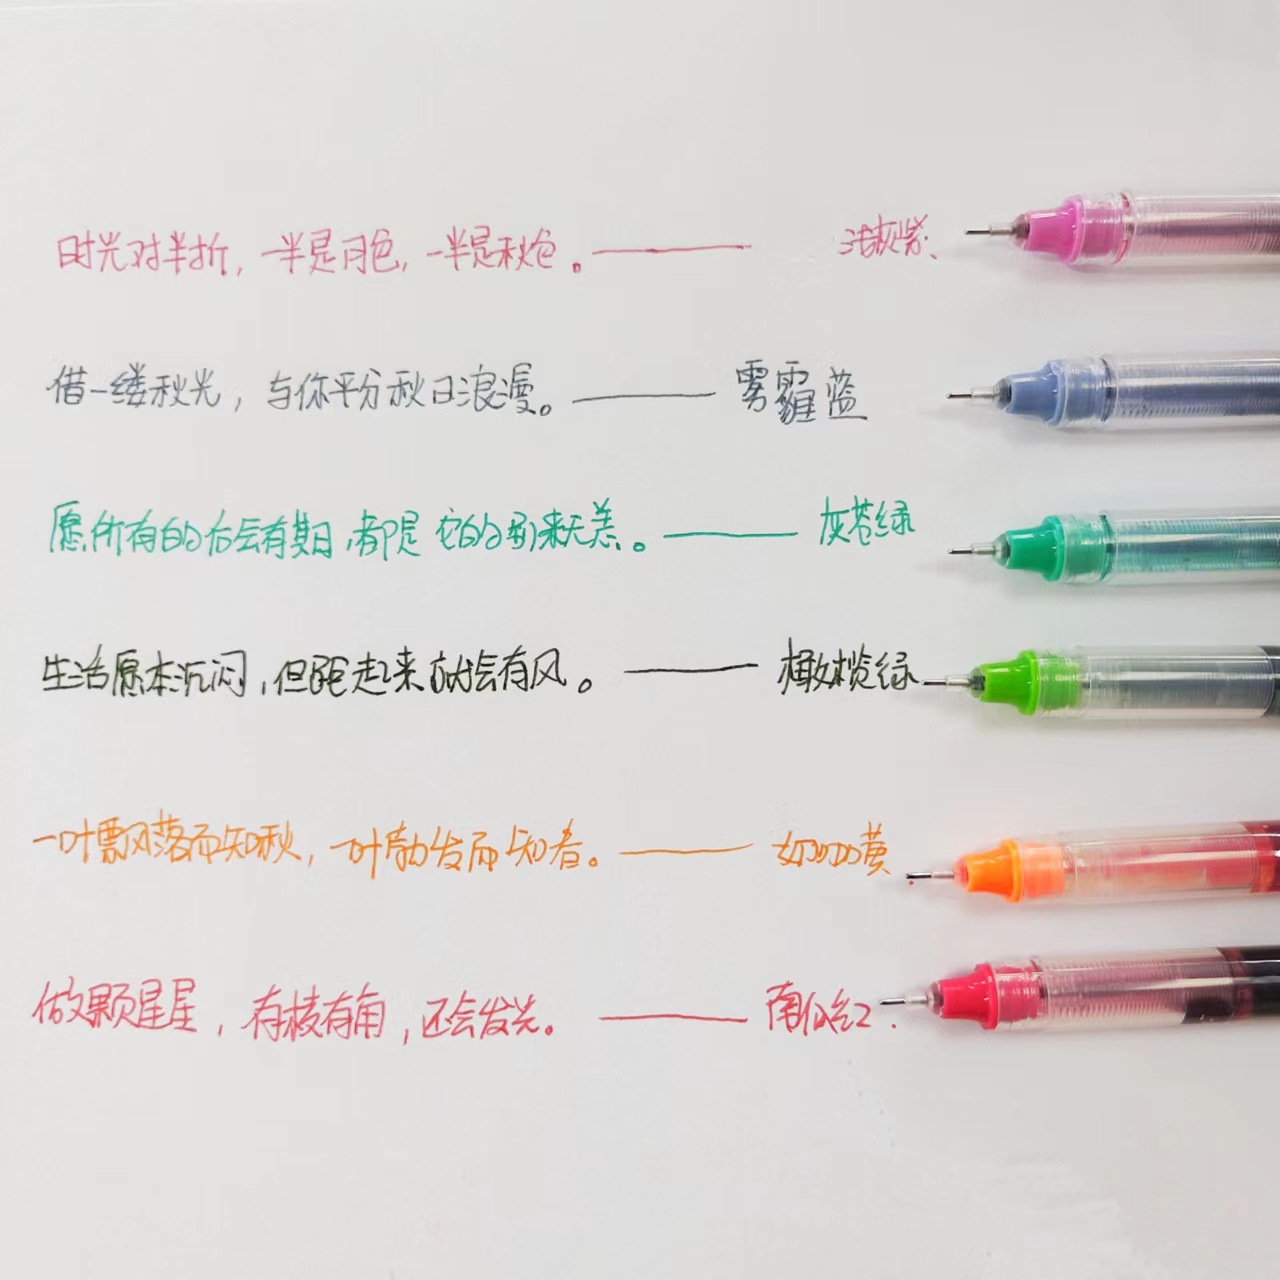 时光对半折，一半是月色，一半是秋色。——浅灰紫
借一缕秋光，与你平分秋日浪漫。——雾霾蓝
愿所有的后会有期，都是它的别来无恙。——灰苍绿
生活原本沉闷，但跑起来就会有风。——橄榄绿
一叶飘落而知秋，一叶勃发而知春。——奶咖黄
做颗星星，有棱有角，还会发光。——南瓜红